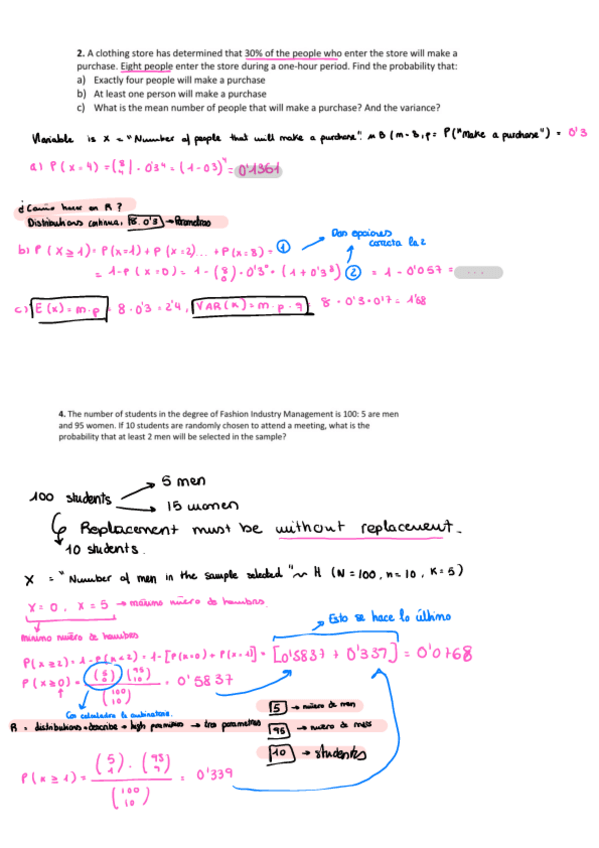 2. A clothing store has determined that 30% of the people who enter the store will make a
purchase. Eight people enter the store during a one-hour period. Find the probability that:
a) Exactly four people will make a purchase
b) At least one person will make a purchase
c) What is the mean number of people that will make a purchase? And the variance?
Variable is x = "Number of people that will make a purchase" ~ B (m = 8, p = P("Make a purchase") = 0'3
a) P(x = 4) = (8 4) · 0'3⁴ = (1 - 03)⁴ = 0'1361
¿Como hacer en R?
Distributions continua, 8, 0'3 → Parametros
b) P(X ≥ 1) = P(x=1) + P(x=2)... + P(x=8) = ① Dos opciones
correcta la 2
= 1 - P(x=0) = 1 - (8 0) · 0'3⁰ · (1 + 0'3⁸) ② = 1 - 0'057 = ...
c) E(x) = m·p = 8 · 0'3 = 2'4, VAR(x) = m·p·q = 8 · 0'3 · 0'7 = 1'68
4. The number of students in the degree of Fashion Industry Management is 100: 5 are men
and 95 women. If 10 students are randomly chosen to attend a meeting, what is the
probability that at least 2 men will be selected in the sample?
5 men
100 students
15 women
Replacement must be without replacement.
10 students.
X = "Number of men in the sample selected" ~ H (N = 100, n = 10, K = 5)
X = 0, X = 5 → máximo número de hombres.
Esto se hace lo último
minimo número de hombres
P(x ≥ 2) = 1 - P(x < 2) = 1 - [P(x=0) + P(x=1)] = [0'5837 + 0'337] = 0'0768
P(x ≥ 0) = (5 0) (95 10) / (100 10) = 0'5837
Con calculadora la combinatoria.
5 → número de men
R = distributions → describe → → tres parametros
95 → número de
10 → students
P(x ≥ 1) = (5 1) · (95 9) / (100 10) = 0'339